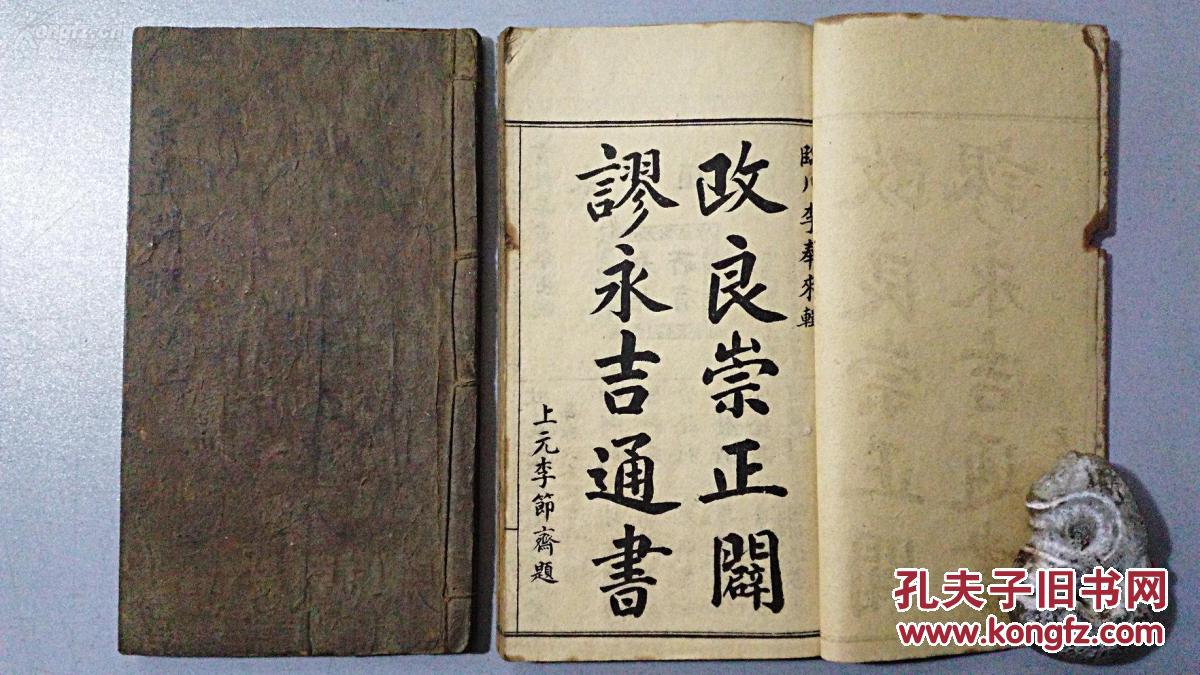 臨川李奉來輯
改良崇正闢
謬永吉通書
上元李節齋題
孔夫子旧书网
www.kongfz.com